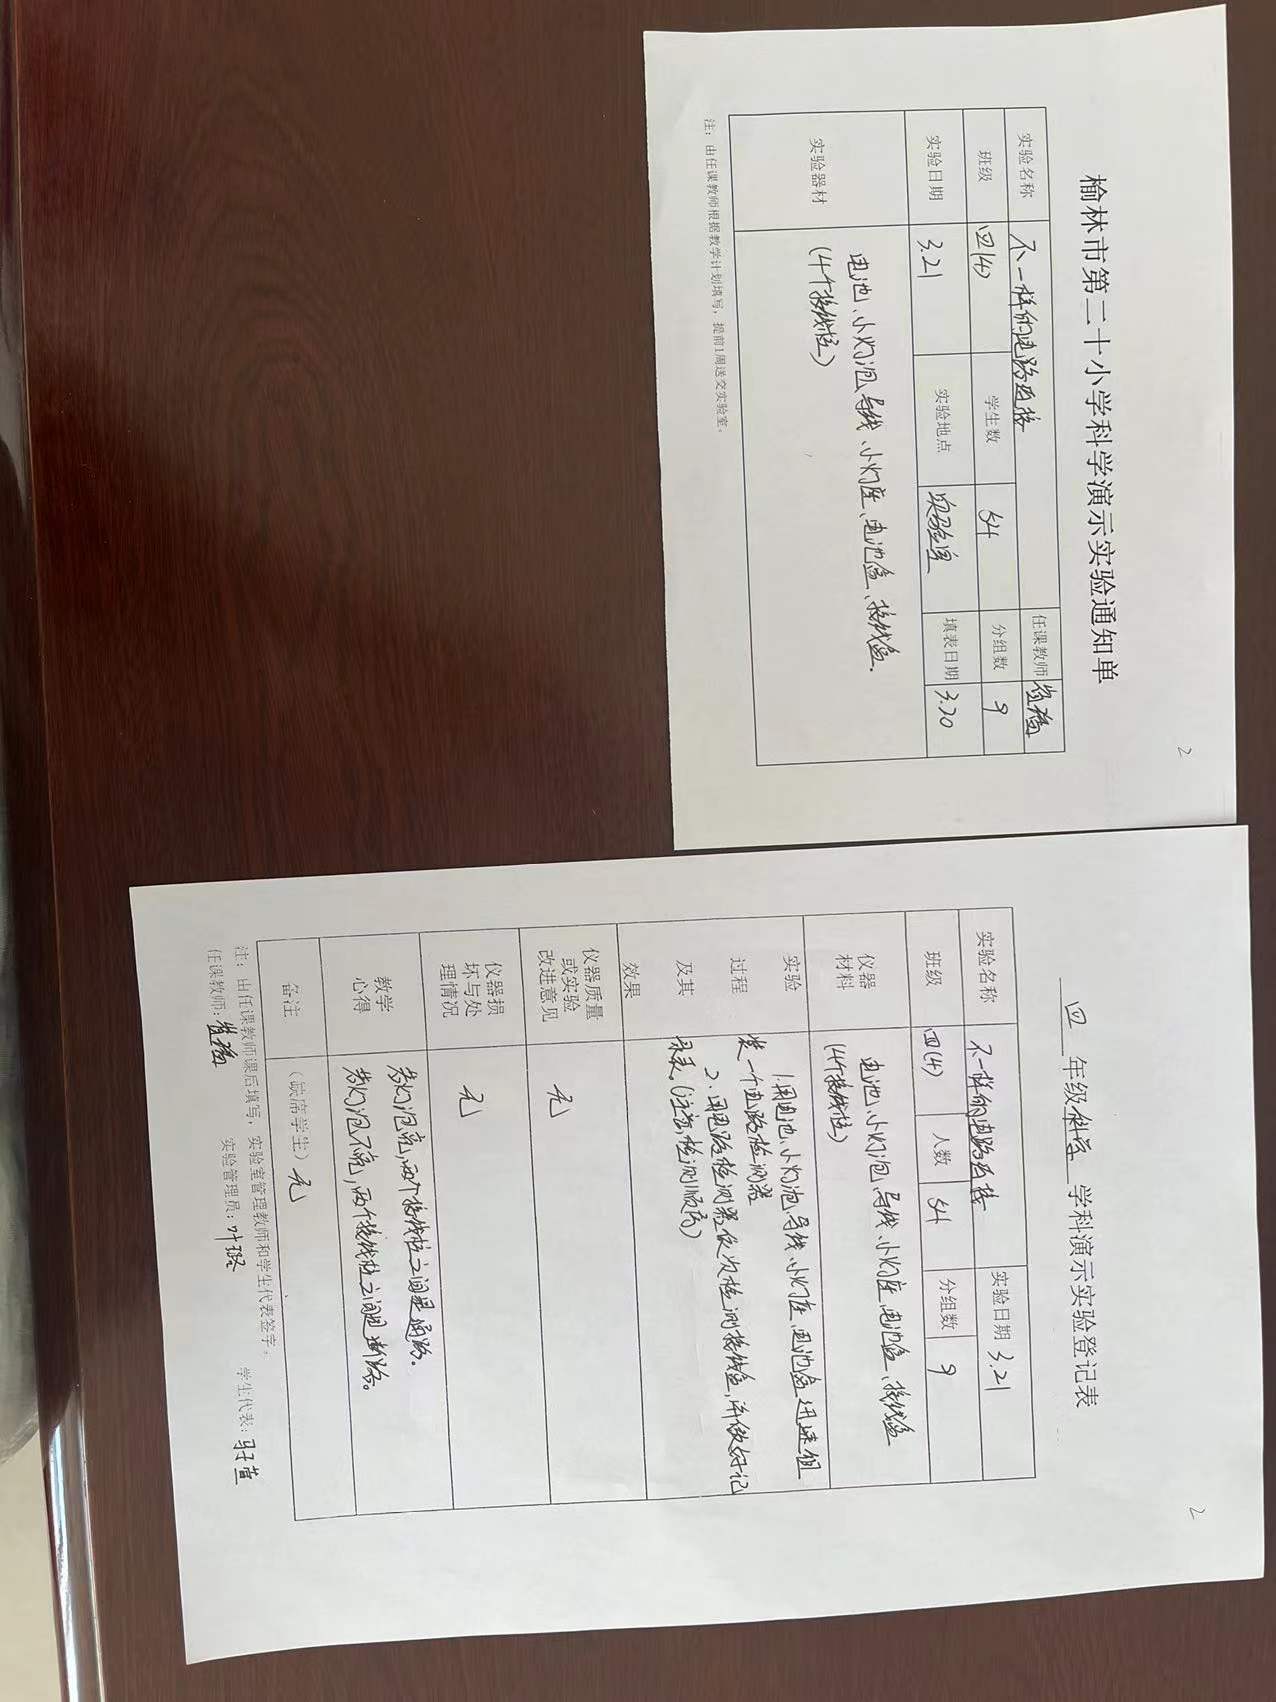 2
榆林市第二十小学科学演示实验通知单
实验名称 不一样的电路连接 任课教师
班级 四(4) 学生数 54 分组数 9
实验日期 3.21 实验地点 实验室 填表日期 3.20
实验器材 电池、小灯泡、导线、小灯座、电池盒、接线盒.
(4个接线柱)
注：由任课教师根据教学计划填写，提前1周送交实验室。
2
四 年级 科学 学科演示实验登记表
实验名称 不一样的电路连接 实验日期 3.21
班级 四(4) 人数 54 分组数 9
仪器材料 电池、小灯泡、导线、小灯座、电池盒、接线盒
(4个接线柱)
实验过程及其效果 1.用电池、小灯泡、导线、小灯座、电池盒迅速组
装一个电路检测器
2.用电路检测器依次检测接线盒，并做好记
录表。(注意检测顺序)
仪器质量或实验改进意见 无
仪器损坏与处理情况 无
教学心得 若灯泡亮，两个接线柱之间是通路。
若灯泡不亮，两个接线柱之间是断路。
备注 (缺席学生) 无
注：由任课教师课后填写，实验室管理教师和学生代表签字。
任课教师: 实验管理员: 学生代表: